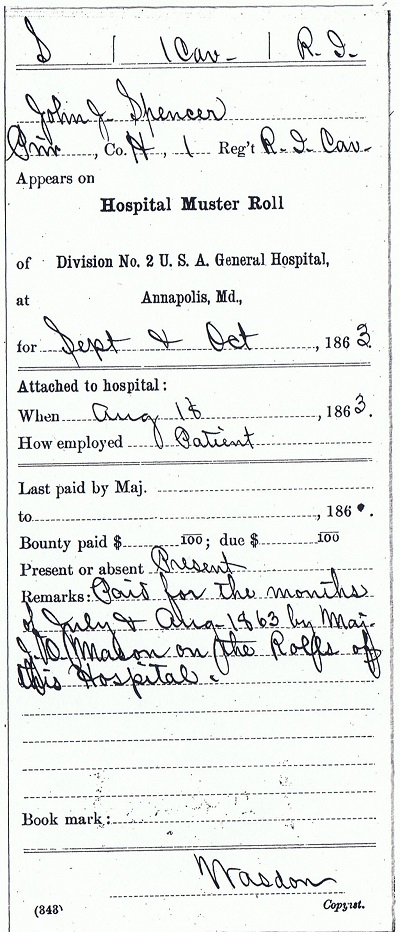 S | 1 Cav. | R. I.
John J. Spencer
Priv, Co. H, 1 Reg't R. I. Cav.
Appears on
Hospital Muster Roll
of Division No. 2 U. S. A. General Hospital,
at Annapolis, Md.,
for Sept & Oct, 1863.
Attached to hospital:
When Aug 18, 1863.
How employed Patient
Last paid by Maj.
to, 186 .
Bounty paid $ 100; due $ 100
Present or absent Present
Remarks: Paid for the months
of July & Aug. 1863 by Maj.
Mason on the Rolls of
this Hospital.
Book mark:
Wasdon
(343) Copyist.